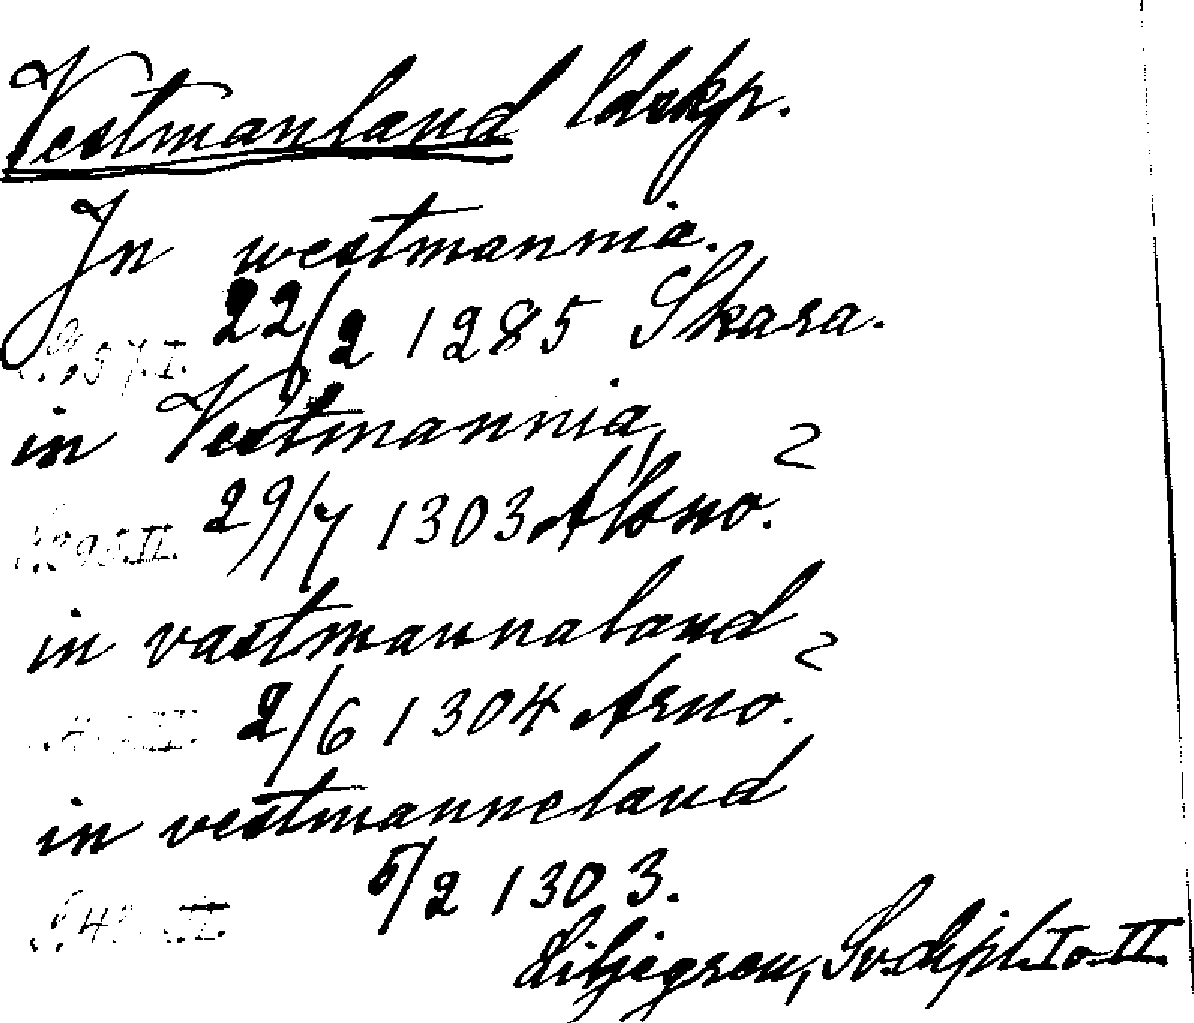 Vestmanland ldskp.
In westmannia.
22/2 1285 Skara.
in Vestmannia,
29/7 1303 Alsno.
in vastmannaland
2/6 1304 Arno.
in vestmanneland
5/2 1303.
Liljegren, Sv. dipl. I o. II.